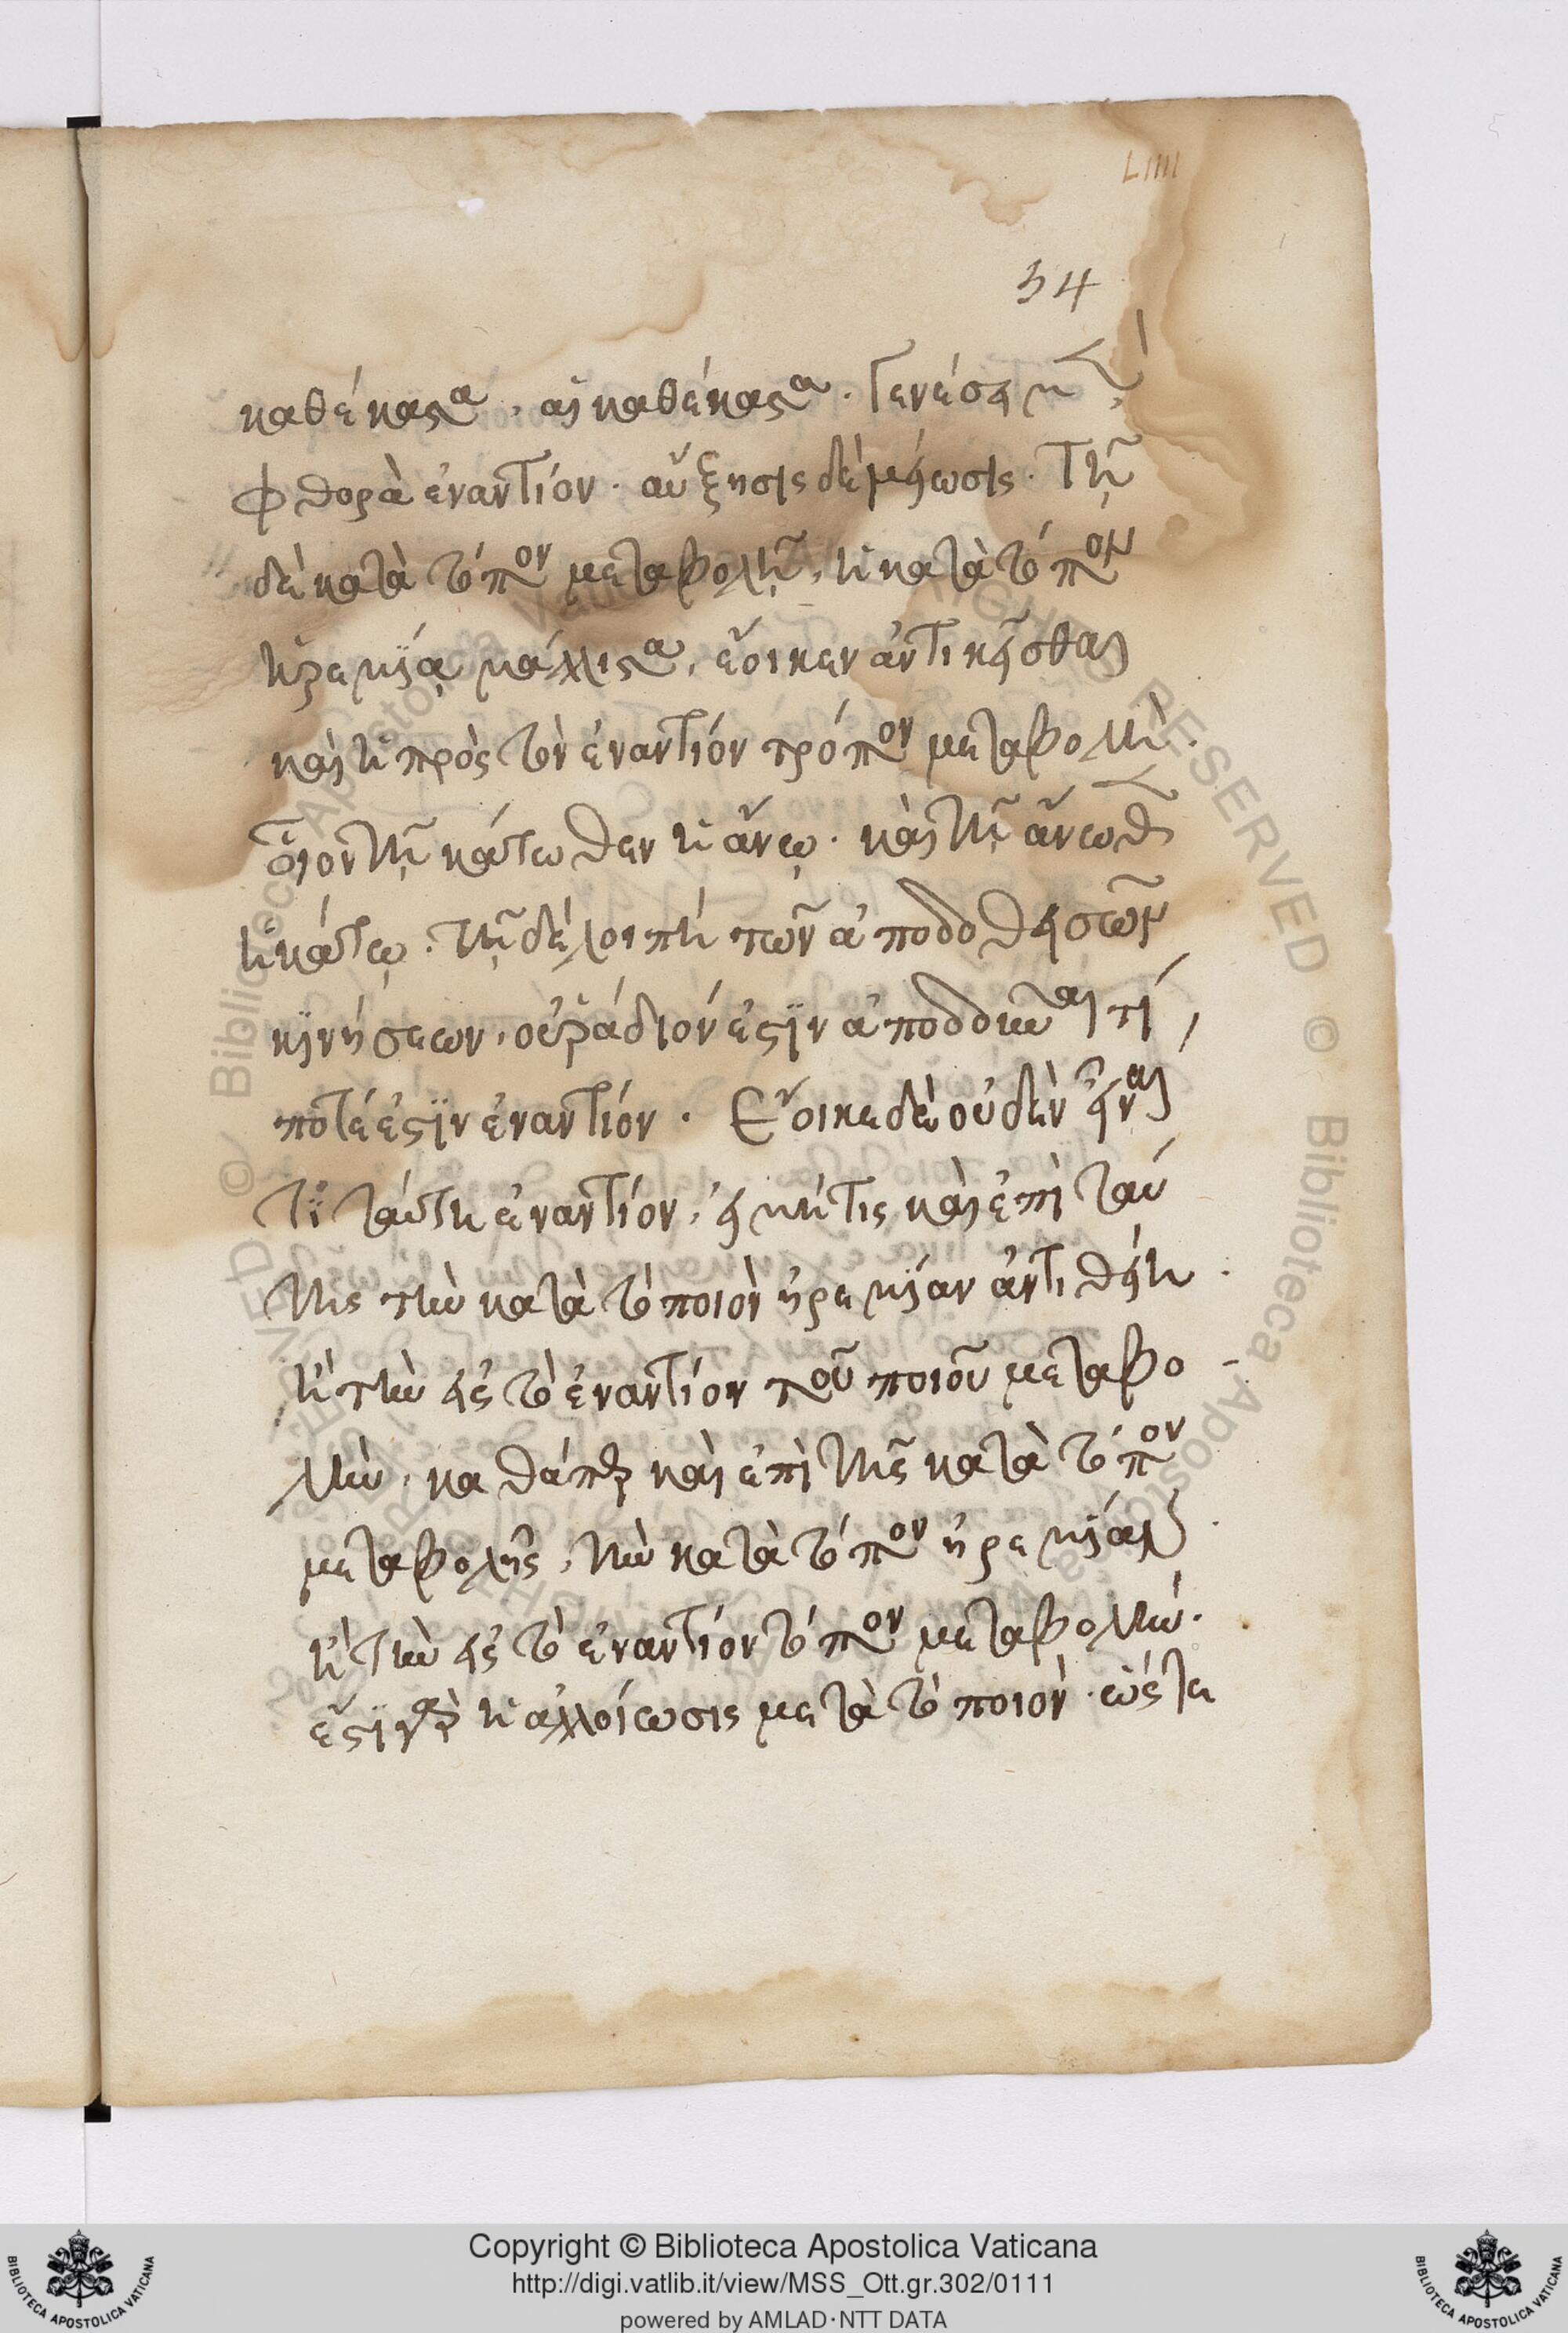 LIIII
54
καθέκαστα, αἱ καθέκαστα. Γενέσει μὲν
φθορὰ ἐναντίον. αὔξησις δὲ μείωσις. Τῇ
δὲ κατὰ τόπον μεταβολῇ, ἡ κατὰ τόπον
ἠρεμία μάλιστα, ἔοικεν ἀντικεῖσθαι
καὶ ἡ πρὸς τὸν ἐναντίον τρόπον μεταβολὴ.
οἷον τῇ κάτωθεν ἡ ἄνω. καὶ τῇ ἄνωθεν
ἡ κάτω. τῇ δὲ λοιπῇ τῶν ἀποδοθεισῶν
κινήσεων, οὐ ῥάδιόν ἐστιν ἀποδοῦναι τί
ποτέ ἐστιν ἐναντίον. Ἔοικε δὲ οὐδὲν εἶναι
τῒ ταύτη ἐναντίον, εἰ μή τις καὶ ἐπὶ ταύ
της τὴν κατὰ τὸ ποιὸν ἠρεμίαν ἀντιθείη.
ἢ τὴν εἰς τὸ ἐναντίον τοῦ ποιοῦ μεταβο-
λὴν, καθάπερ καὶ ἐπὶ τῆς κατὰ τόπον
μεταβολῆς, τὴν κατὰ τόπον ἠρεμίαν.
ἢ τὴν εἰς τὸ ἐναντίον τόπον μεταβολήν.
ἔστιν γὰρ ἡ ἀλλοίωσις μετὰ τὸ ποιὸν. ὥστε
Copyright © Biblioteca Apostolica Vaticana
http://digi.vatlib.it/view/MSS_Ott.gr.302/0111
powered by AMLAD·NTT DATA
BIBLIOTECA APOSTOLICA VATICANA
BIBLIOTECA APOSTOLICA VATICANA